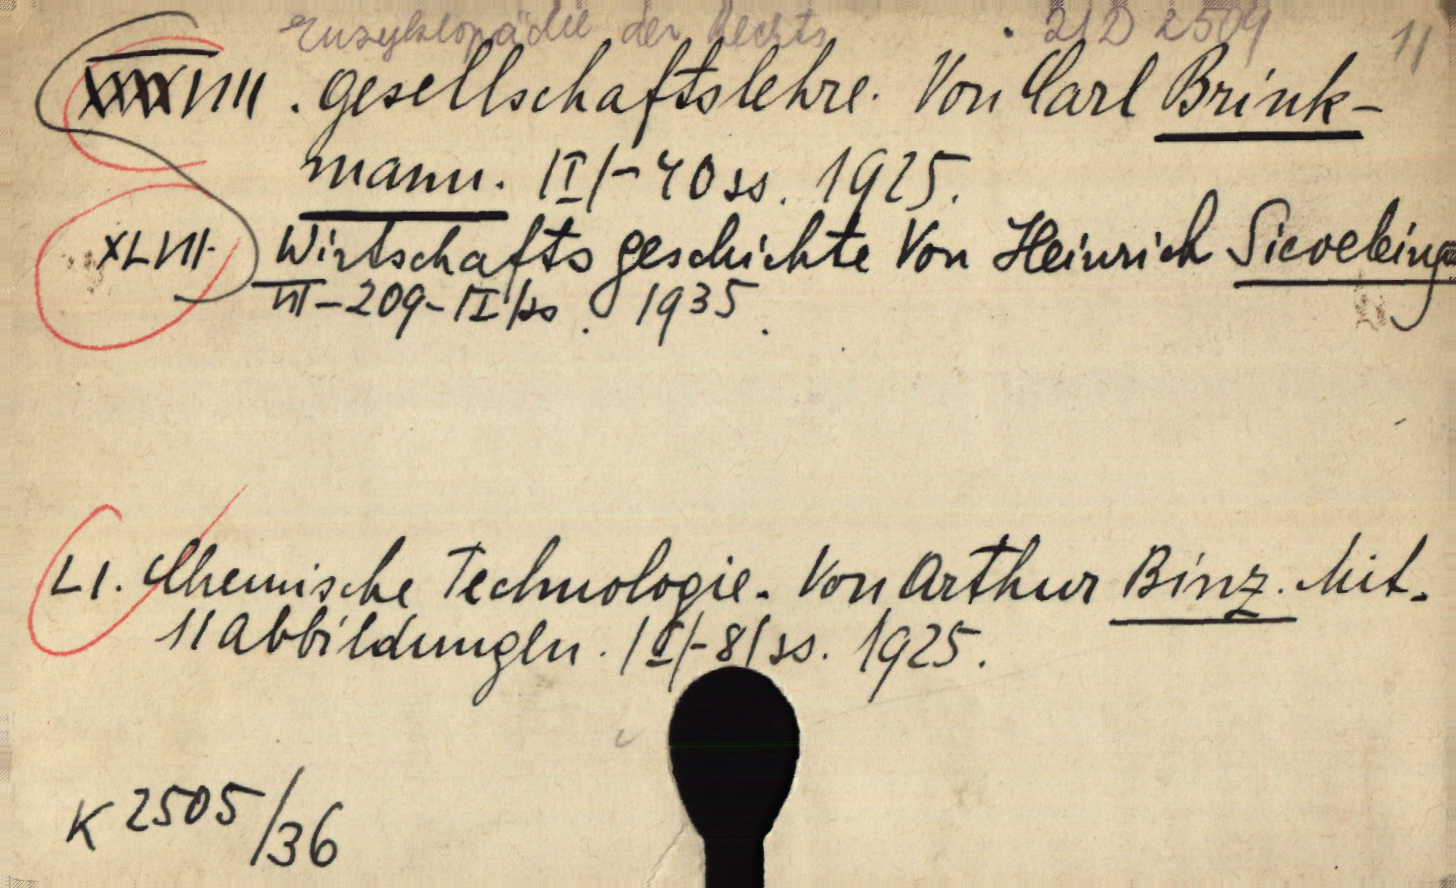 Enzyklopädie der Rechts . 21D 2509 11
XXXXVIII . Gesellschaftslehre. Von Carl Brink-
mann. |I|-40 ss. 1925.
XLVII. Wirtschaftsgeschichte Von Heinrich Sieveking
VII-209-|I|ss. 1935.
LI. Chemische Technologie. Von Arthur Binz. Mit.
11 Abbildungen. |I|-81 ss. 1925.
K 2505/36